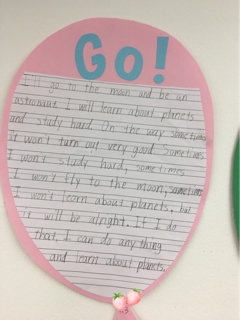 Go!
I'll go to the moon and be an
astronaut. I will learn about planets
and study hard. On the way sometimes
it won't turn out very good. Sometimes
I won't study hard, sometimes
I won't fly to the moon, sometimes
I won't learn about planets, but
it will be alright. If I do
that, I can do any thing
and learn about planets.